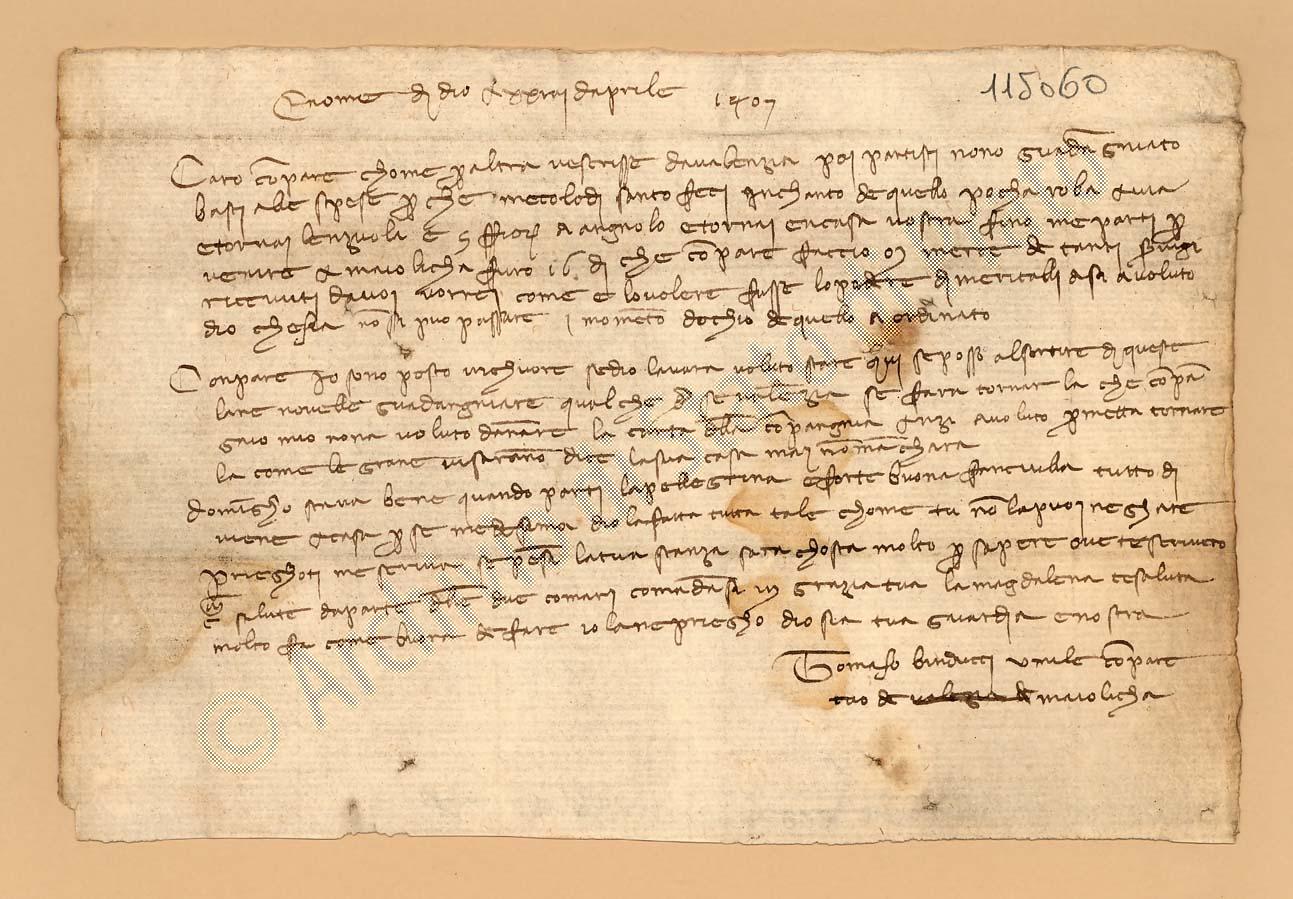 E nome di dio a xxvi daprile 1407
115060
Caro conpare chome per altra ve scrisse da valenzia poi partisti nono guadangniato
basti a le spese per che me tolo di santo feci inchanto de quello pocha roba avia
e tornai lenzuola e 5 fior a angnolo e tornai en casa vostra fino me parti per
venire a maiolicha furo 16 di che conpare faccio merce de tanti
ricevuti da voi vorrei come e lo volere fusse lo podere di meritalli a si a voluto
dio che sia non si puo passare i momento dochio de quello a ordinato
Conpare Io sono posto vichuore se dio lavara voluto stare qui se posso al sortire di queste
lane novelle guadangniare qualche se valenzia se fara tornar la che conpa
gnio mio nona voluto dannare la conta della conpangnia anzi a voluto prometta tornare
la come le grane vi saranno dice la sua casa mai non mancharà
domingho stava bene quando parti la pellegrina e forte buona fanciulla tutto di
viene a casa per se medesima dio la fatta tutta tale chome tu non la puoi neghare
prieghoti me scriva se pensi la tua stanza sara chosta molto per sapere ove te scriverò
salute da parte delle due comari comandasi in grazia tua la magdalena te saluta
molto fa come buona de fare io la ne priegho dio sia tua guardia e nostra
Tomaso binducci umile conpare
tuo de maiolicha
© Archivio di Stato di Prato